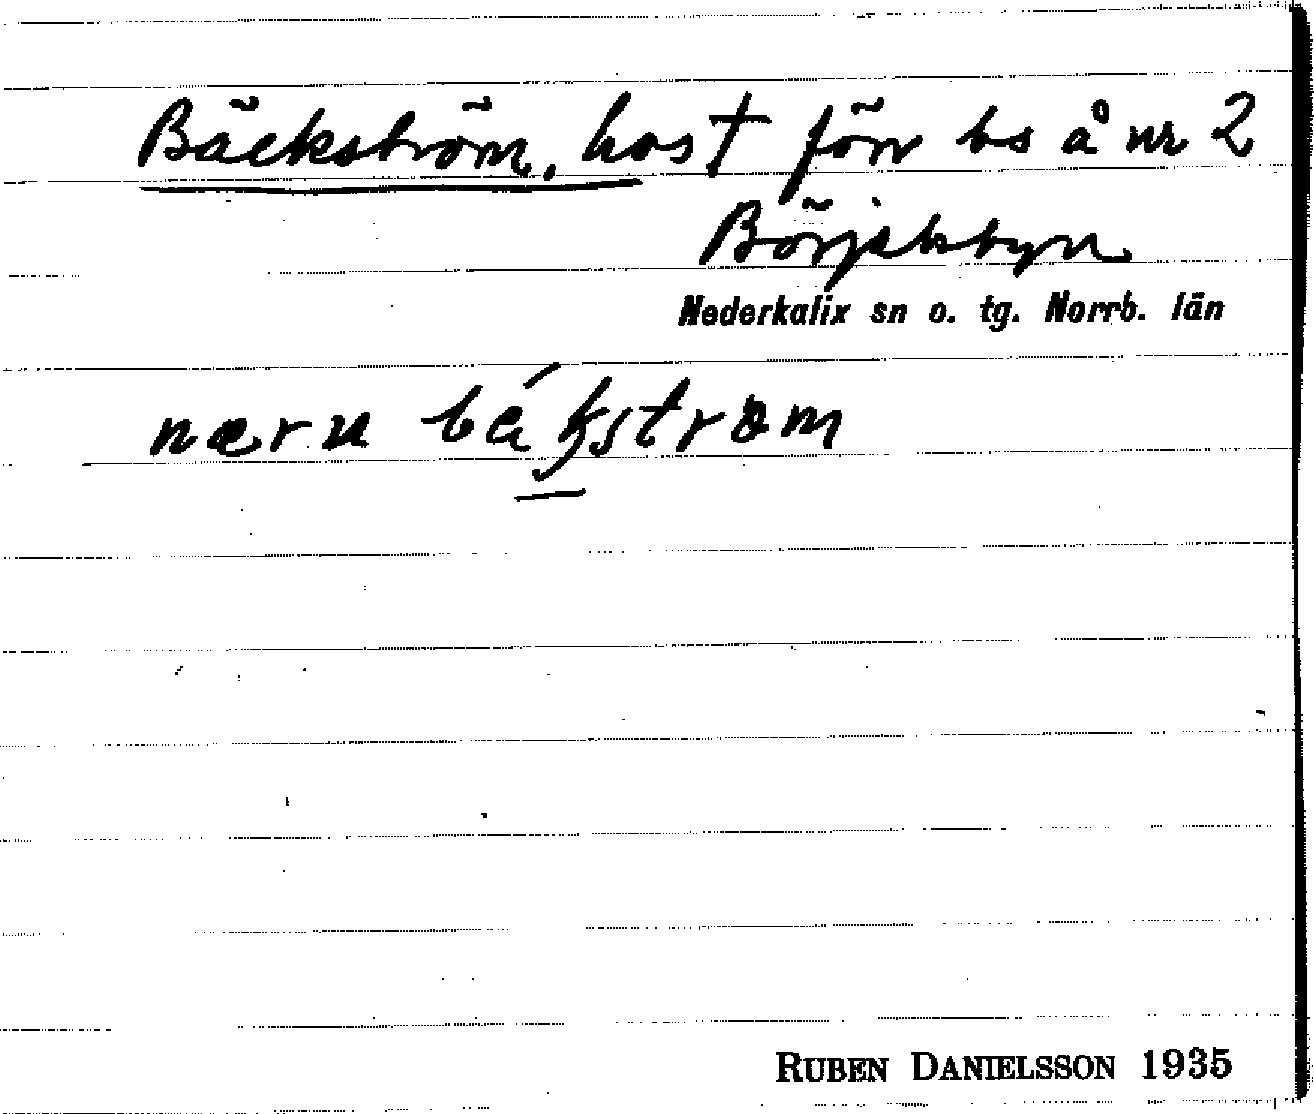 Bäckström, hos † förr bs å nr 2
Börjelsbyn
Nederkalix sn o. tg. Norrb. län
næru
RUBEN DANIELSSON 1935